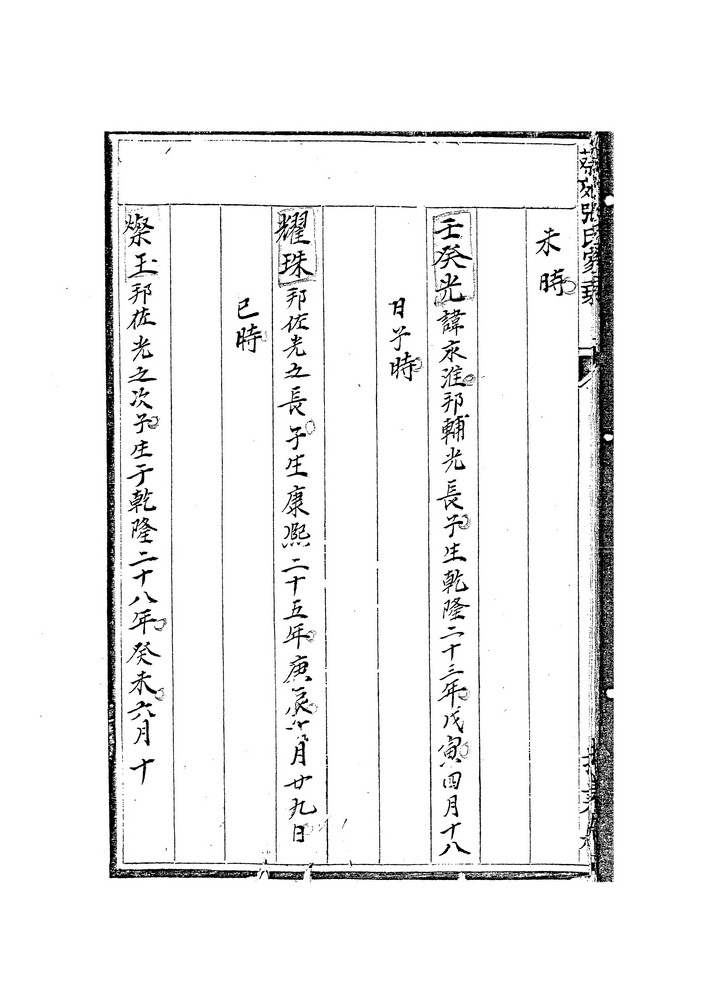 未時
壬癸光諱永淮邦輔光長子生乾隆二十三年戊寅四月十八
日子時
耀珠邦佐光之長子生康熙二十五年庚辰月廿九日
巳時
燦玉邦佐光之次子生于乾隆二十八年癸未六月十
張氏家